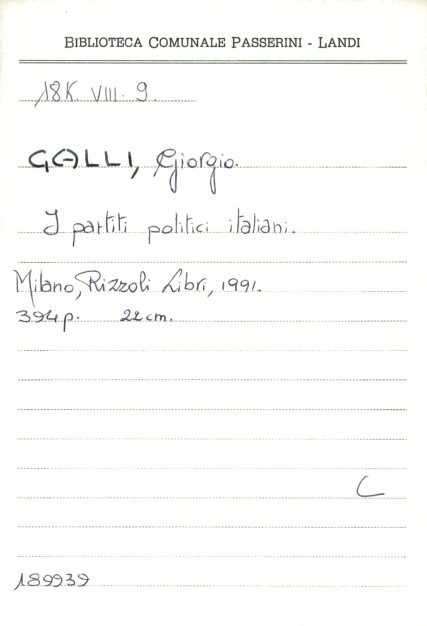 BIBLIOTECA COMUNALE PASSERINI - LANDI
18K. VIII. 9.
GALLI, Giorgio.
I partiti politici italiani.
Milano, Rizzoli Libri, 1991.
394 p. 22 cm.
C
189939